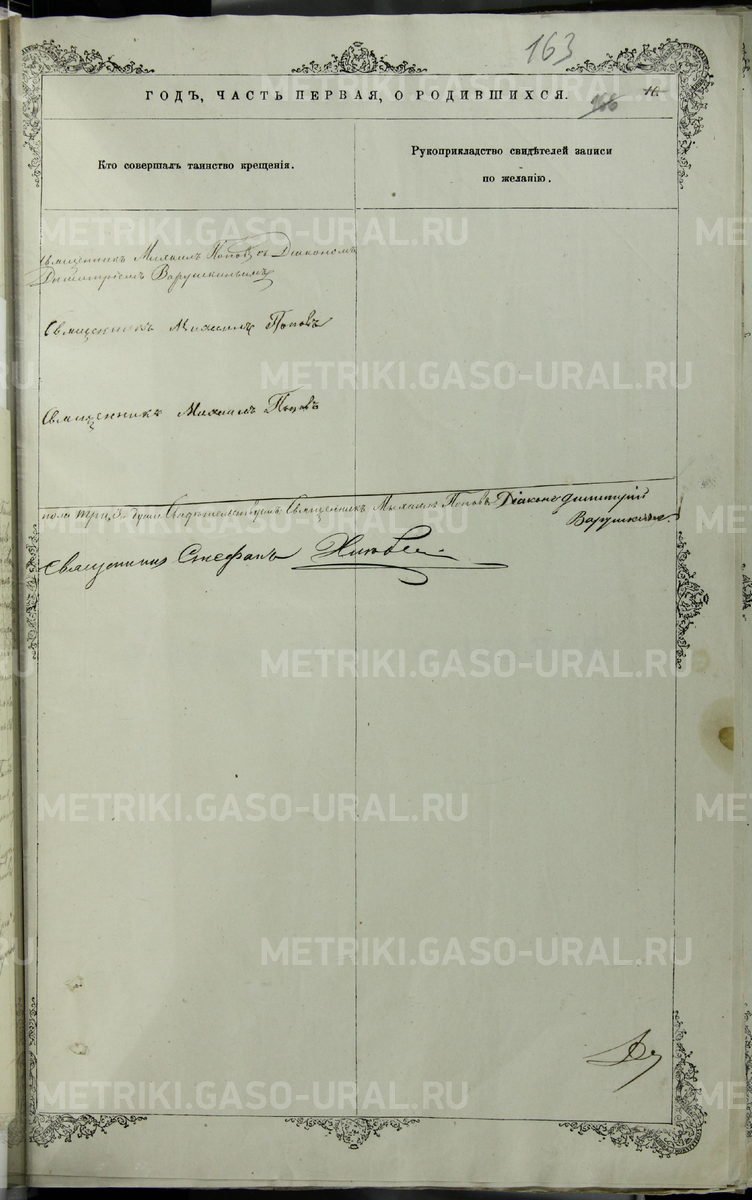 163
ГОДЪ, ЧАСТЬ ПЕРВАЯ, О РОДИВШИХСЯ.
166
16
Кто совершалъ таинство крещенія.
Рукоприкладство свидѣтелей записи
по желанію.
METRIKI.GASO-URAL.RU
Священникъ Михаилъ Поповъ съ Діакономъ
Димитріемъ Варушкинымъ
Священникъ Михаилъ Поповъ
Священникъ Михаилъ Поповъ
пола три, 3, души Священникъ Михаилъ Поповъ Діаконъ Димитрий
Варушкинъ.
Священникъ Стефанъ